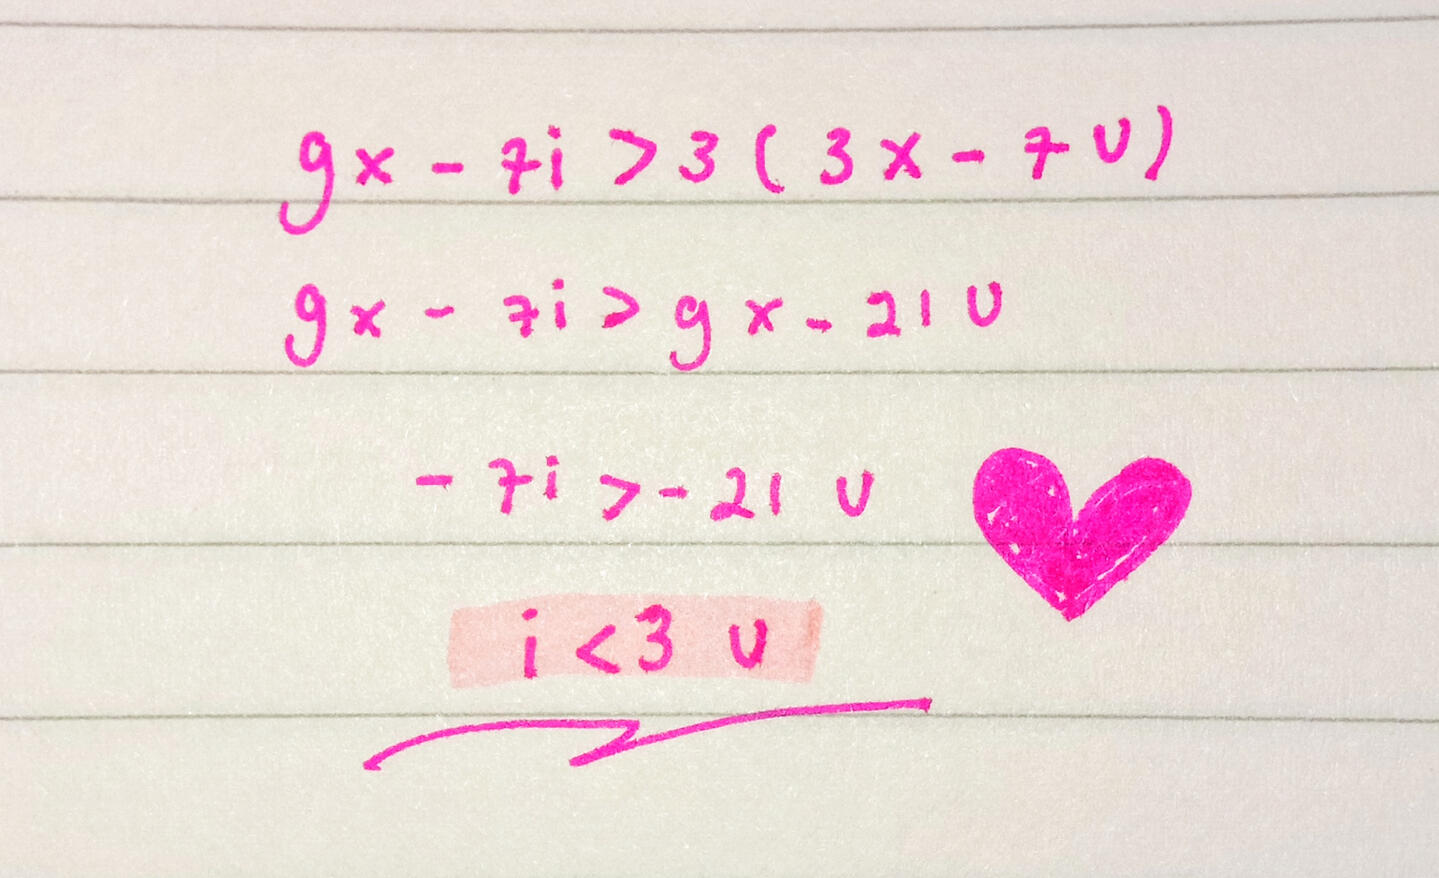 9x - 7i > 3 ( 3x - 7u )
9x - 7i > 9x - 21u
- 7i > - 21 u
i < 3 u